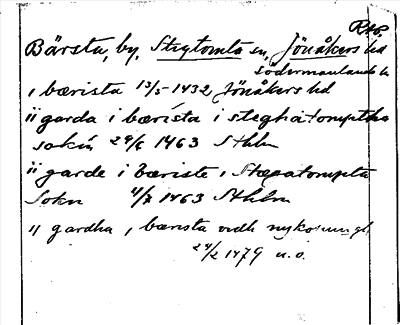 RAP.
Bärsta, by, Stigtomta sn, Jönåkers hd
Södermanlands l.
i bærista 13/5 1432, Jönåkers hd
ii garda i bærista i steghatomptha
sokn 29/6 1463 Sthlm
ii garde i Bæriste i Stægatompta
Sokn 4/7 1463 Sthlm
ij gardha i bærista widh nykopung
24/2 1479 u.o.